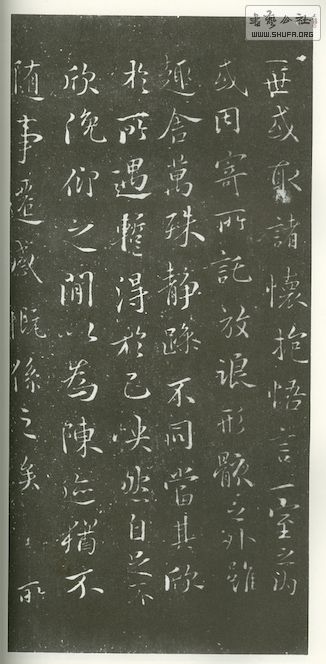 書藝公社
WWW.SHUFA.ORG
世或取諸懷抱悟言一室之內
或因寄所託放浪形骸之外雖
趣舍萬殊靜躁不同當其欣
於所遇暫得於己快然自足不
欣俛仰之間以為陳迹猶不
隨事遷感慨係之矣所